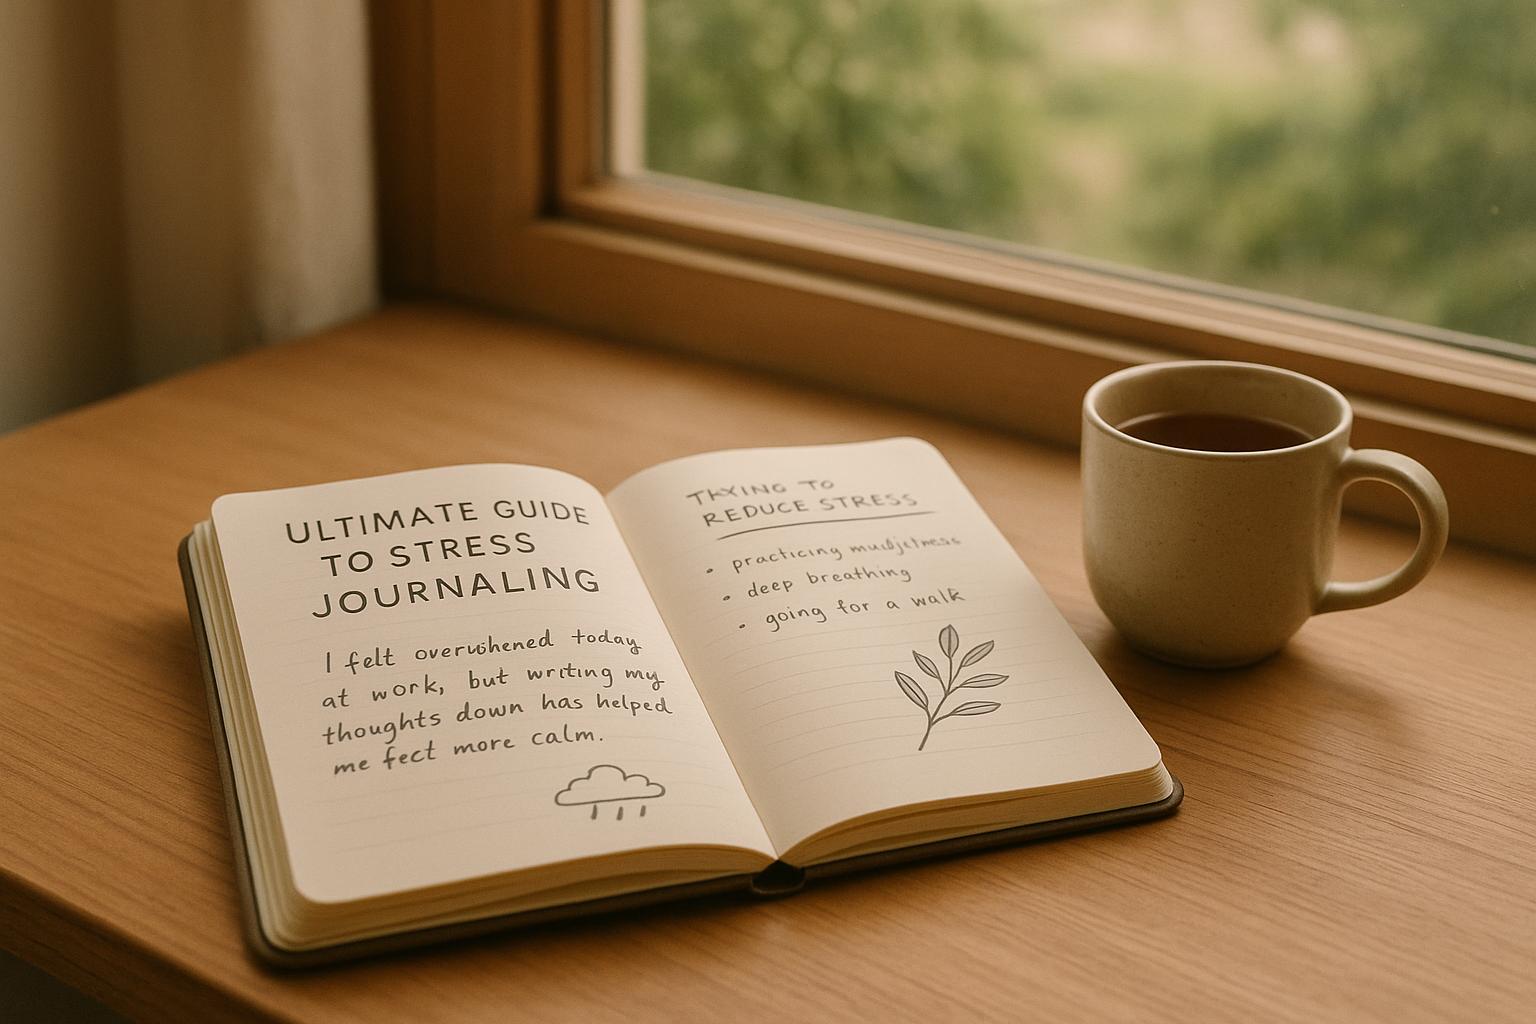 ULTIMATE GUIDE
TO STRESS
JOURNALING
I felt overwhened today
at work, but writing my
thoughts down has helped
me fect more calm.
TRYING TO
REDUCE STRESS
• practicing
• deep breathing
• going for a walk